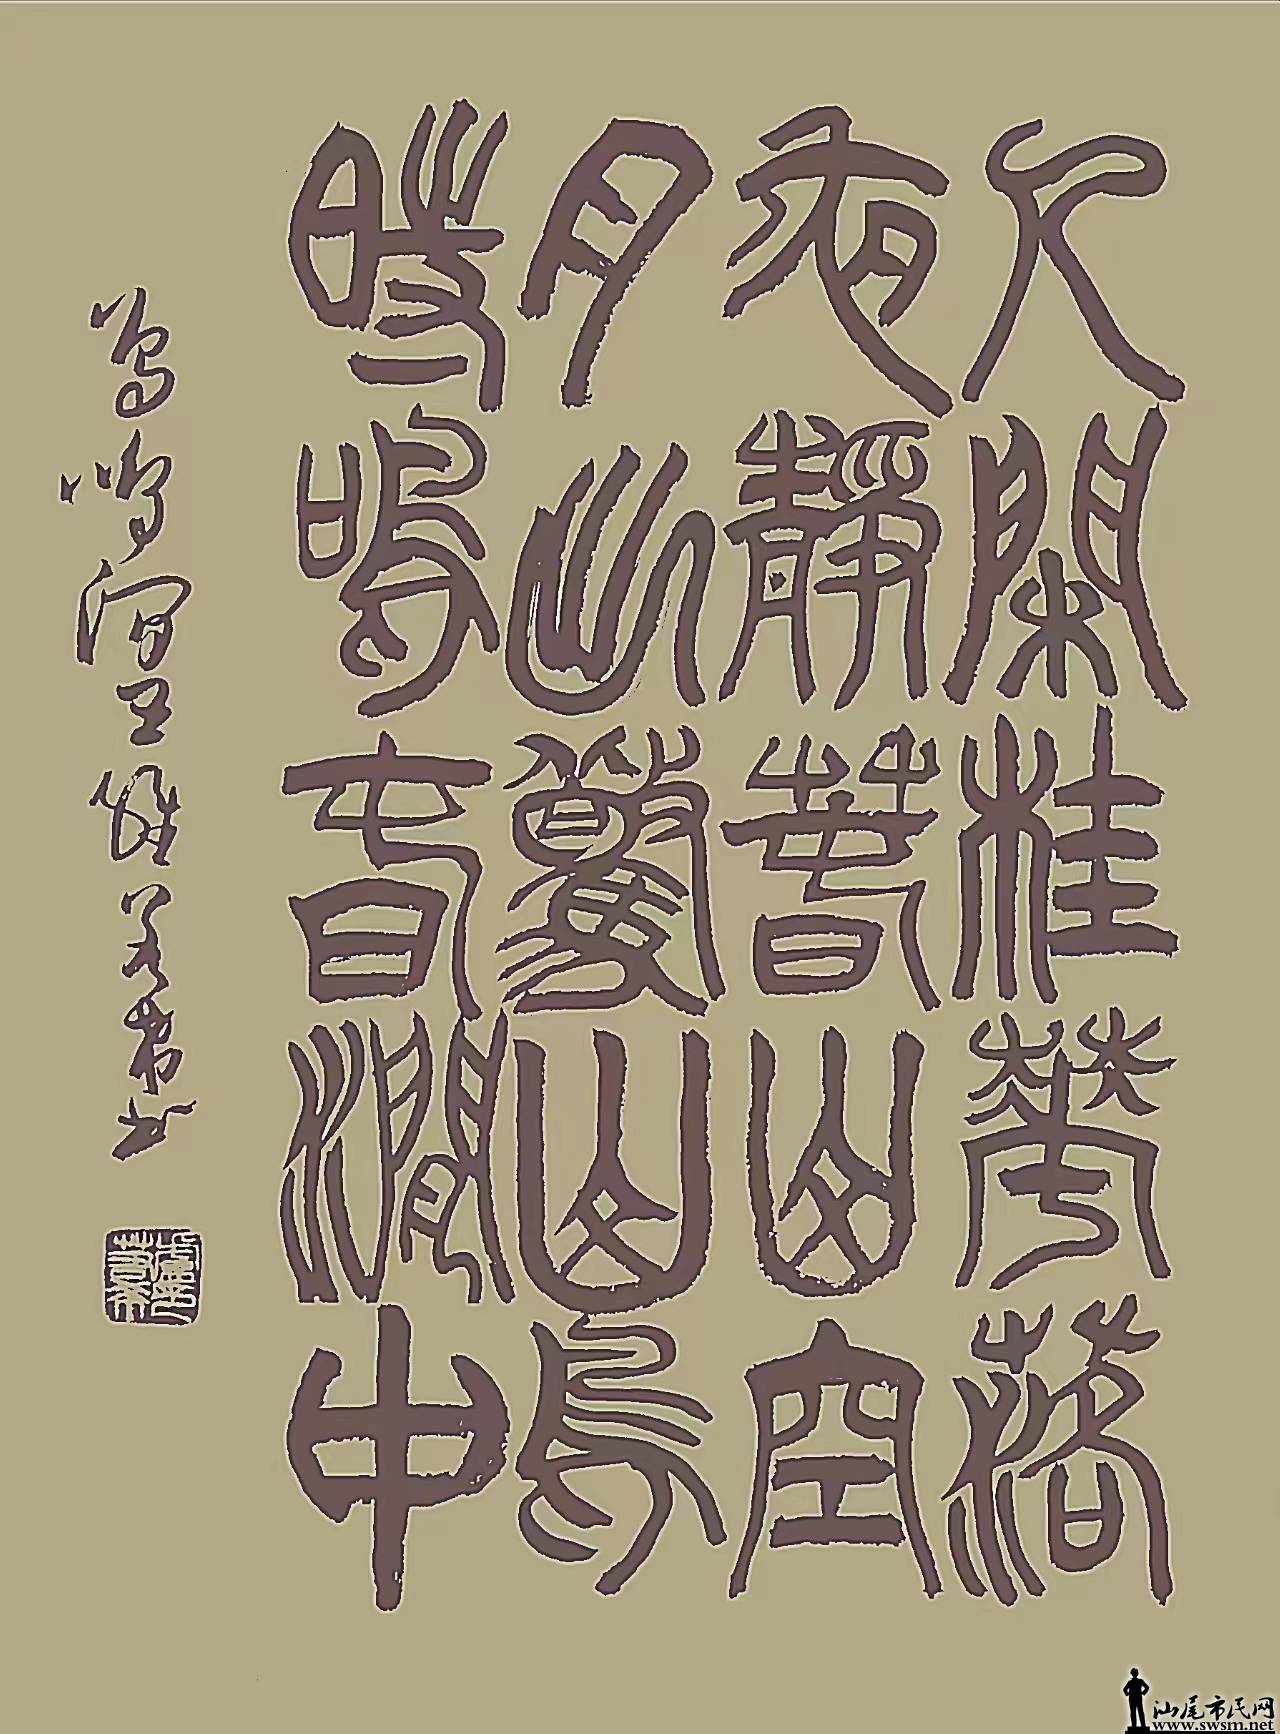 人閑桂華落
夜靜春山空
月出驚山鳥
時鳴春澗中
鳥鳴澗王維
汕尾市民网
www.swsm.net